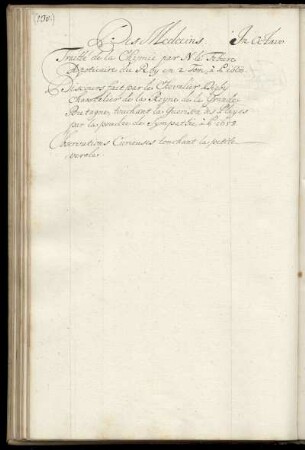 (150.)
Des Medecins In Octavo
Traitté de la Chymie par N. le Febure
Apoticaire du Roy en 2 Tom. à P. 1660
Discours fait par le Chevalier Digby
Chancelier de la Reyne de la Grande
Bretagne, touchant la Guerison des Playes
par la poudre de Sympathie, à P. 1658
Observations Curieuses touchant la petite
verole